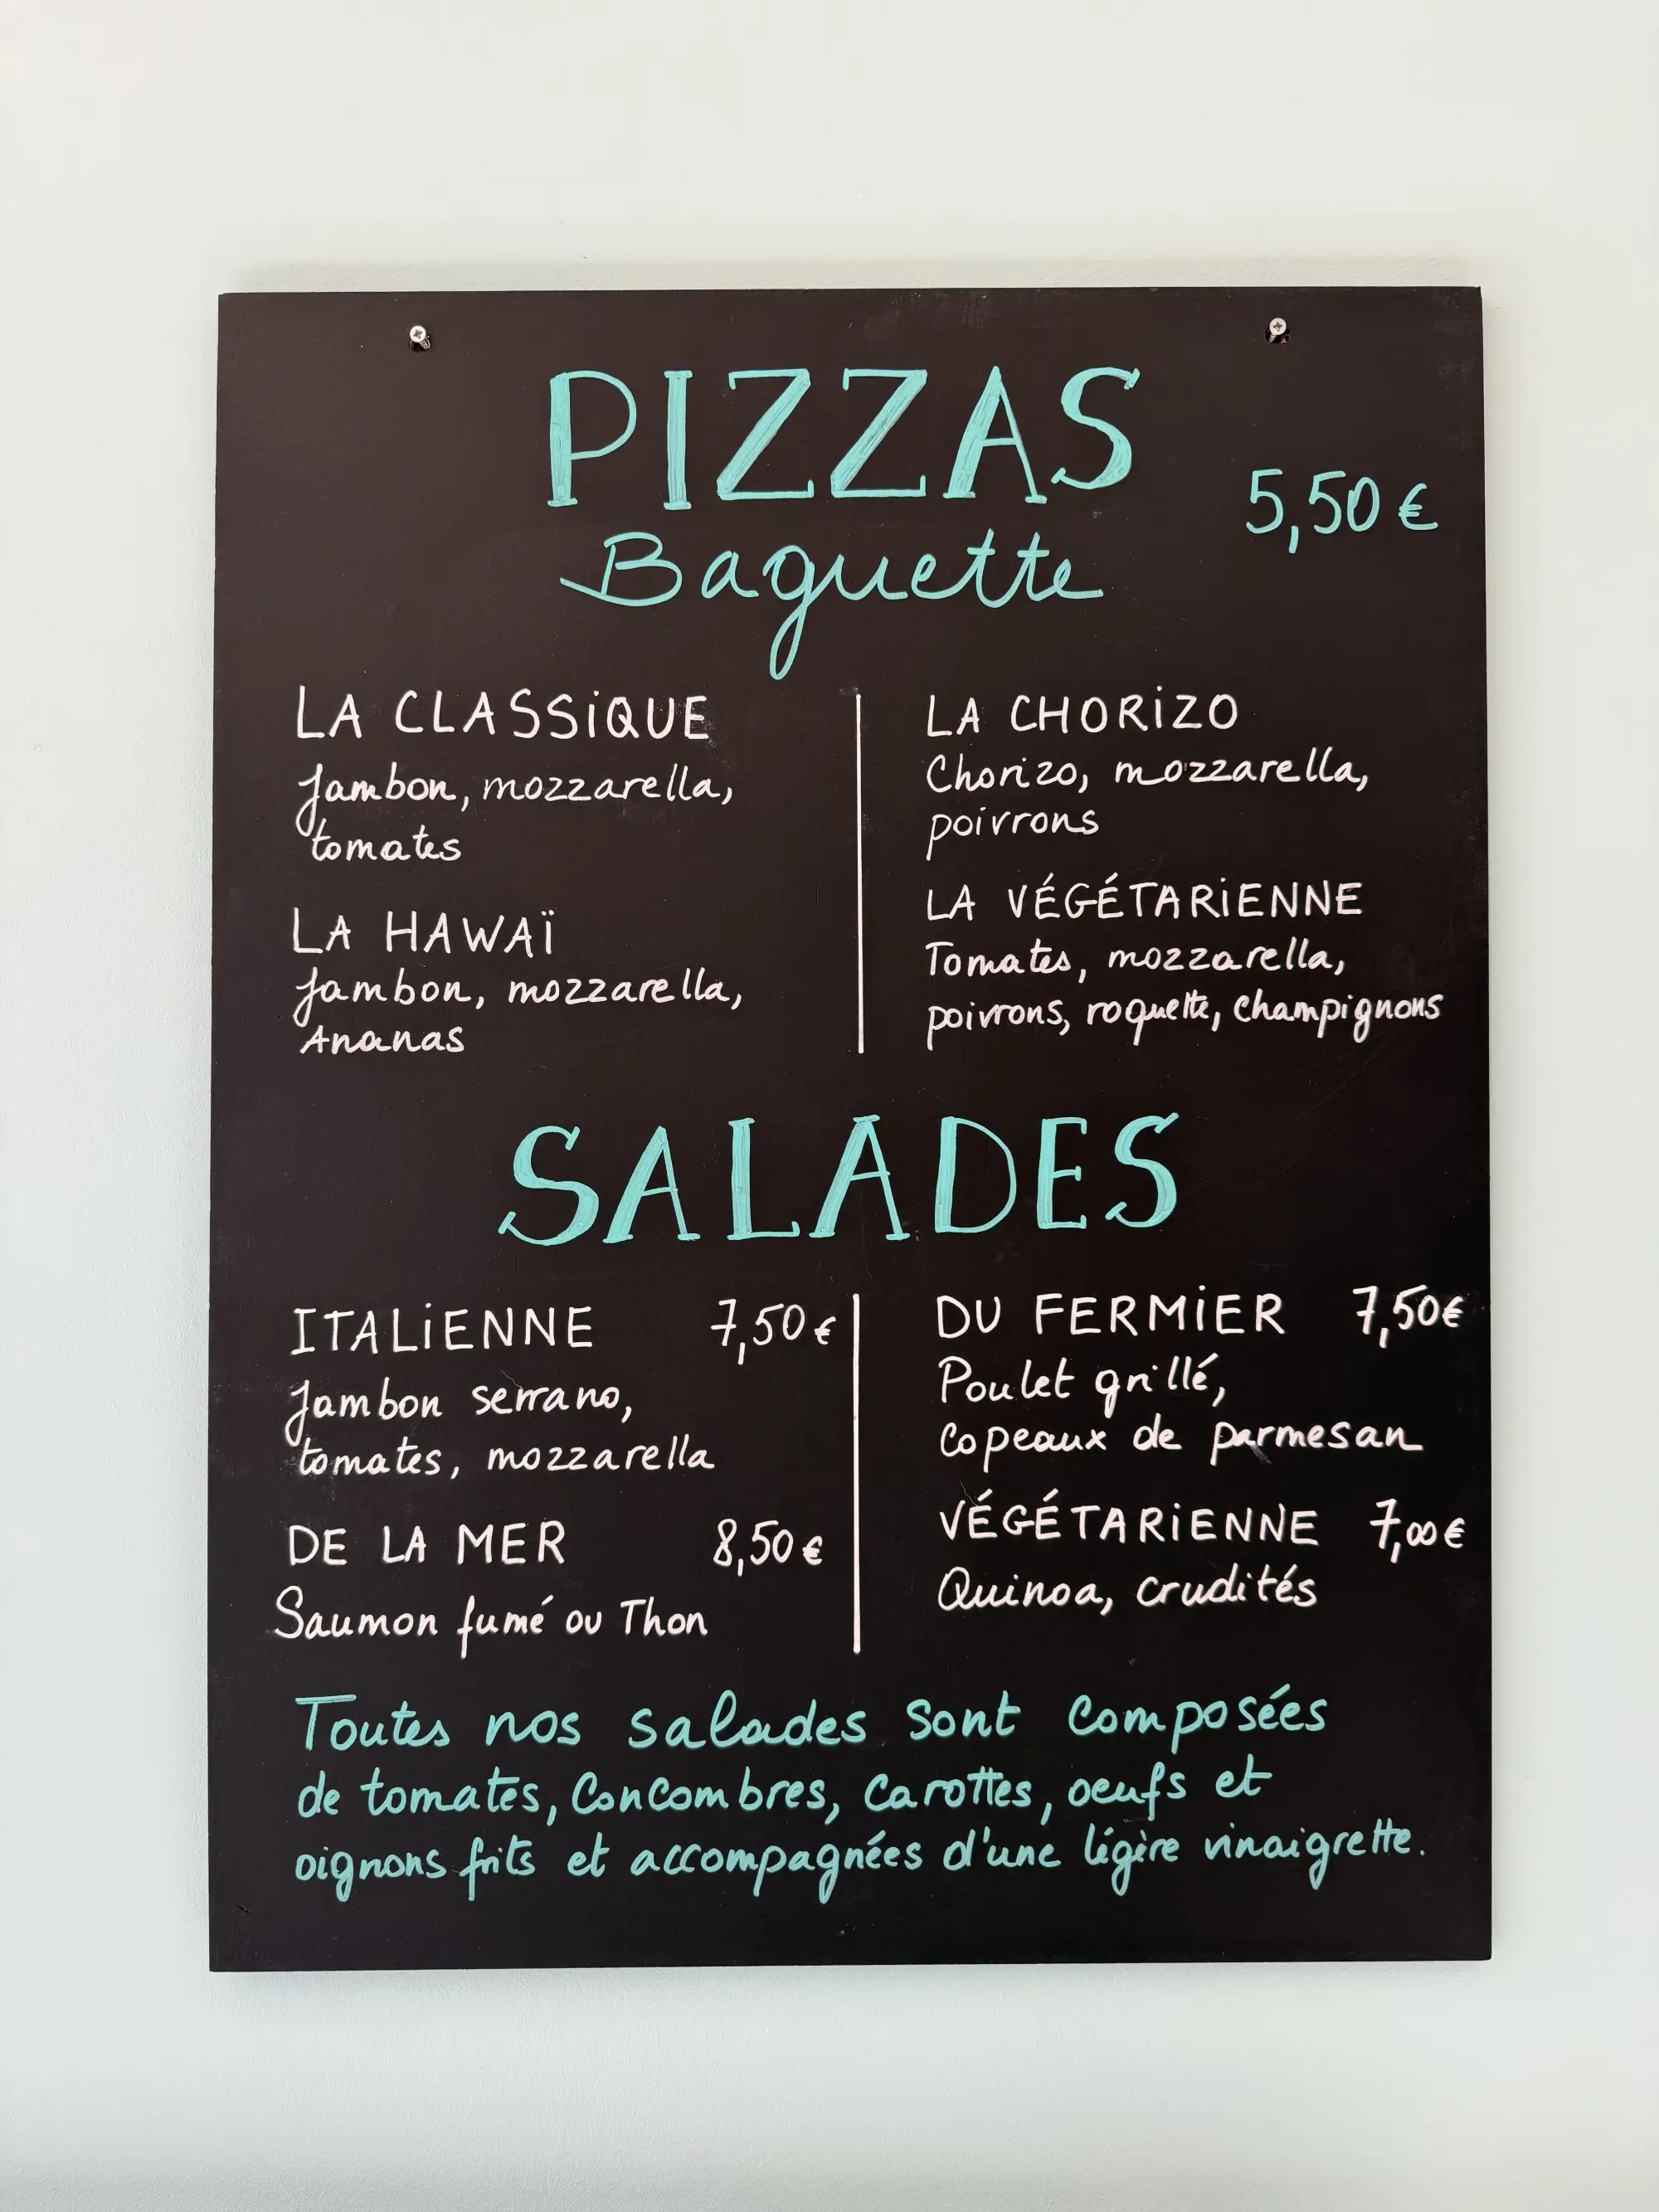 PIZZAS
5,50 €
Baguette
LA CLASSiQUE
Jambon, mozzarella,
tomates
LA HAWAÏ
Jambon, mozzarella,
Ananas
LA CHORiZO
Chorizo, mozzarella,
poivrons
LA VÉGÉTARiENNE
Tomates, mozzarella,
poivrons, roquette, champignons
SALADES
ITALiENNE 7,50 €
Jambon serrano,
tomates, mozzarella
DE LA MER 8,50 €
Saumon fumé ou Thon
DU FERMiER 7,50€
Poulet grillé,
Copeaux de parmesan
VÉGÉTARiENNE 7,00 €
Quinoa, crudités
Toutes nos salades sont composées
de tomates, Concombres, Carottes, oeufs et
oignons frits et accompagnées d'une légère vinaigrette.